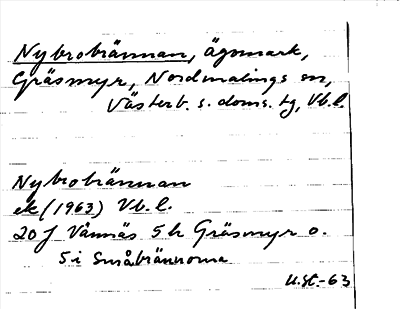 Nybrobrännan, ägomark,
Gräsmyr, Nordmalings sn,
Västerb. s. doms. tg, Vb. l.
Nybrobrännan
ek (1963) Vb. l.
20 J Vännäs 5 h Gräsmyr o.
5 i Småbrännorna
U.St.-63